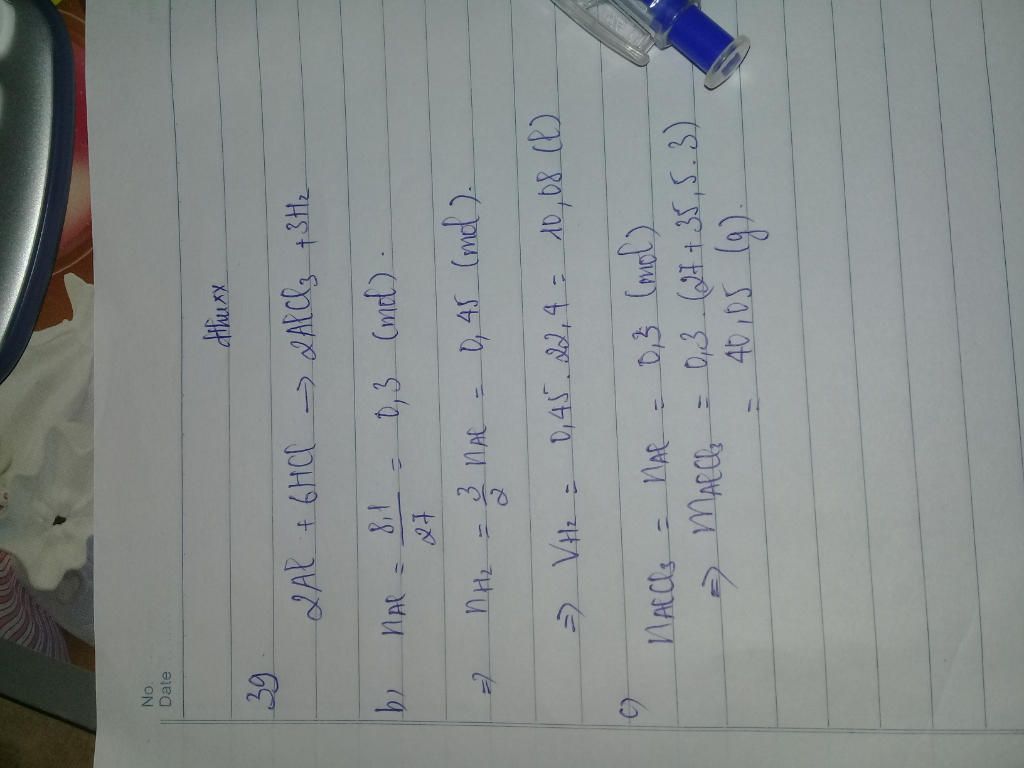 No.
Date
thuxx
39
2Al + 6HCl → 2AlCl₃ + 3H₂
b, nAl = 8,1/27 = 0,3 (mol).
=> nH₂ = 3/2 nAl = 0,45 (mol).
=> VH₂ = 0,45.22,4 = 10,08 (l)
c) nAlCl₃ = nAl = 0,3 (mol)
=> mAlCl₃ = 0,3.(27+35,5.3)
= 40,05 (g).